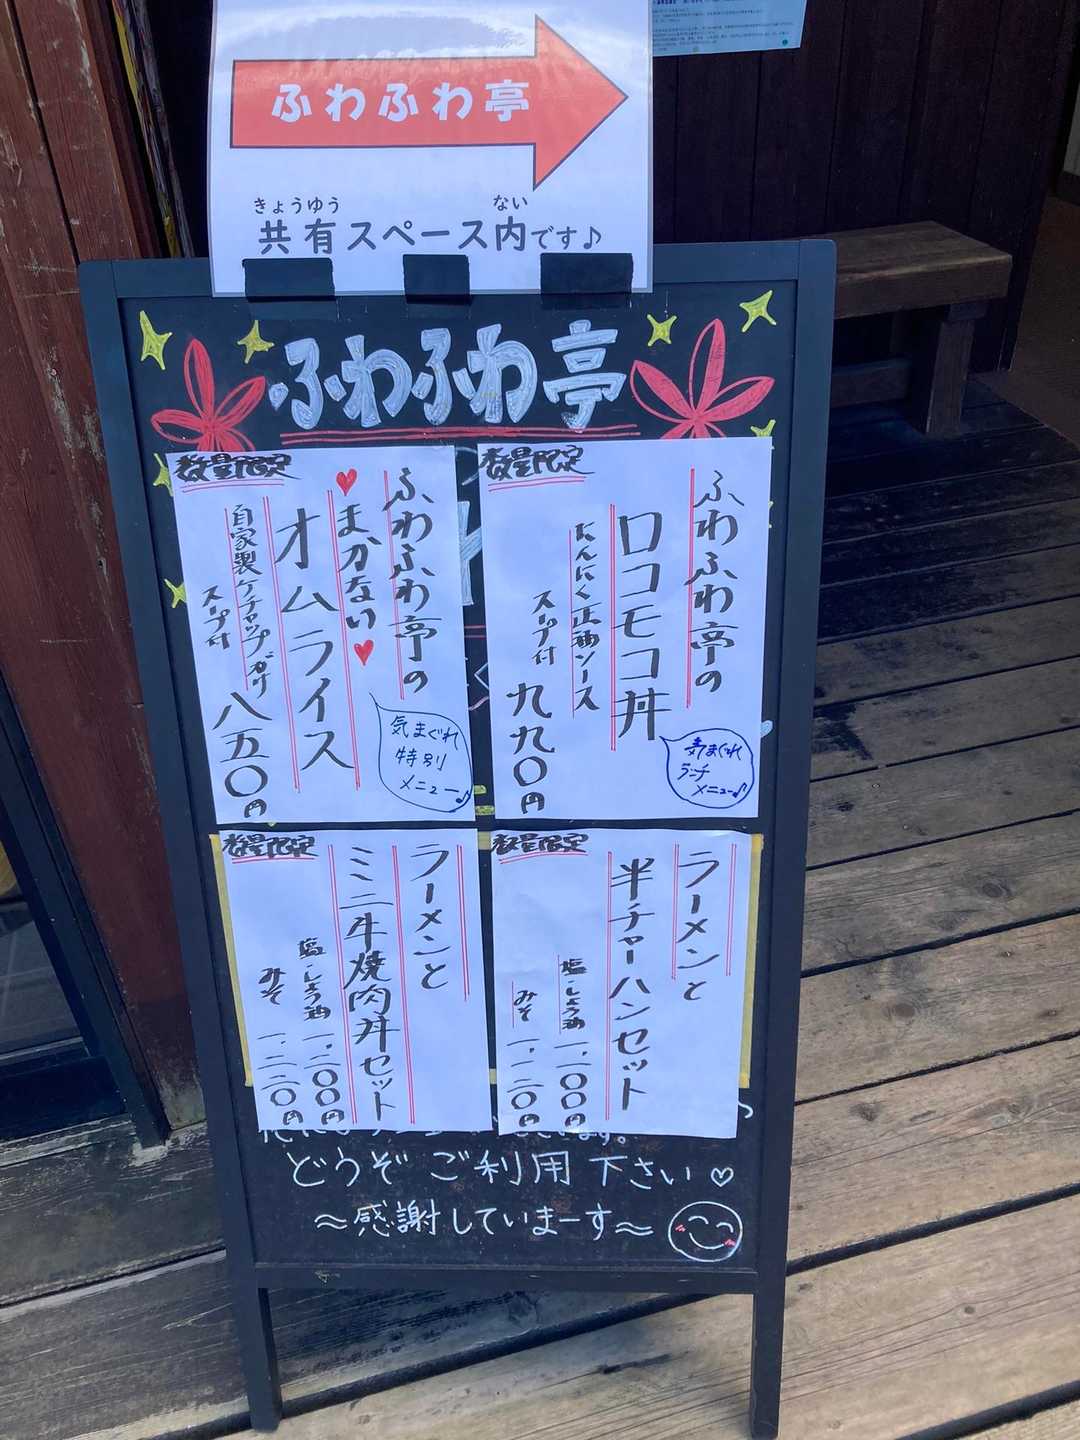 ふわふわ亭
きょうゆう ない
共有スペース内です♪
ふわふわ亭
数量限定
ふわふわ亭の
ロコモコ丼
にんにく正油ソース
スープ付
九九〇円
気まぐれ
ランチ
メニュー♪
数量限定
ふわふわ亭の
♥まかない♥
オムライス
自家製ケチャップがけ
スープ付
八五〇円
気まぐれ
特別
メニュー♪
数量限定
ラーメンと
半チャーハンセット
塩・しょう油 一、一〇〇円
みそ 一、一二〇円
数量限定
ラーメンと
ミニ牛焼肉丼セット
塩・しょう油 一、二〇〇円
みそ 一、二二〇円
どうぞご利用下さい♡
〜感謝していまーす〜